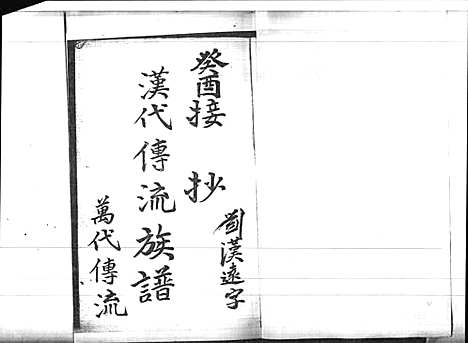 癸酉接抄
漢代傳流族譜
萬代傳流
漢遠字